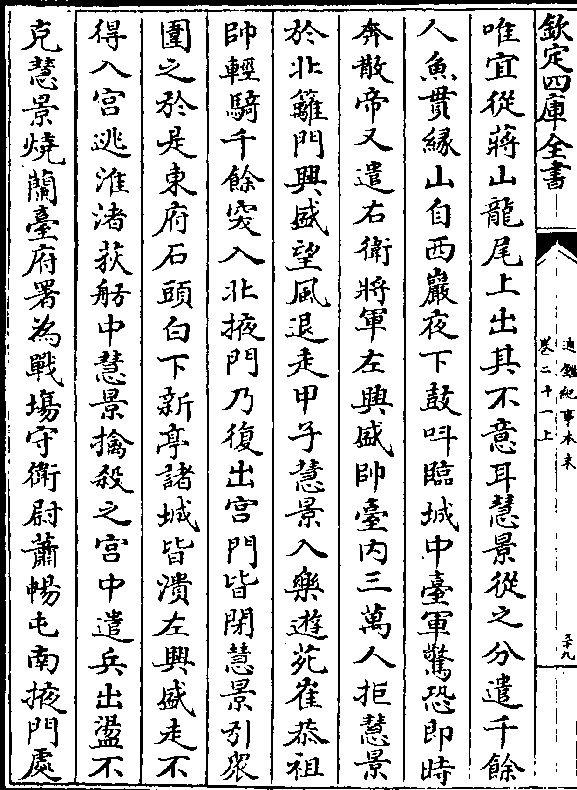 欽定四庫全書
通鑑紀事本末
卷二十一上
五十九
唯宜從蔣山龍尾上出其不意耳慧景從之分遣千餘
人魚貫緣山自西巖夜下鼓叫臨城中臺軍驚恐即時
奔散帝又遣右衛將軍左興盛帥臺内三萬人拒慧景
於北籬門興盛望風退走甲子慧景入樂遊苑崔恭祖
帥輕騎千餘突入北掖門乃復出宫門皆閉慧景引衆
圍之於是東府石頭白下新亭諸城皆潰左興盛走不
得入宫逃淮渚荻舫中慧景擒殺之宫中遣兵出盪不
克慧景燒蘭臺府署為戰塲守衛尉蕭暢屯南掖門處